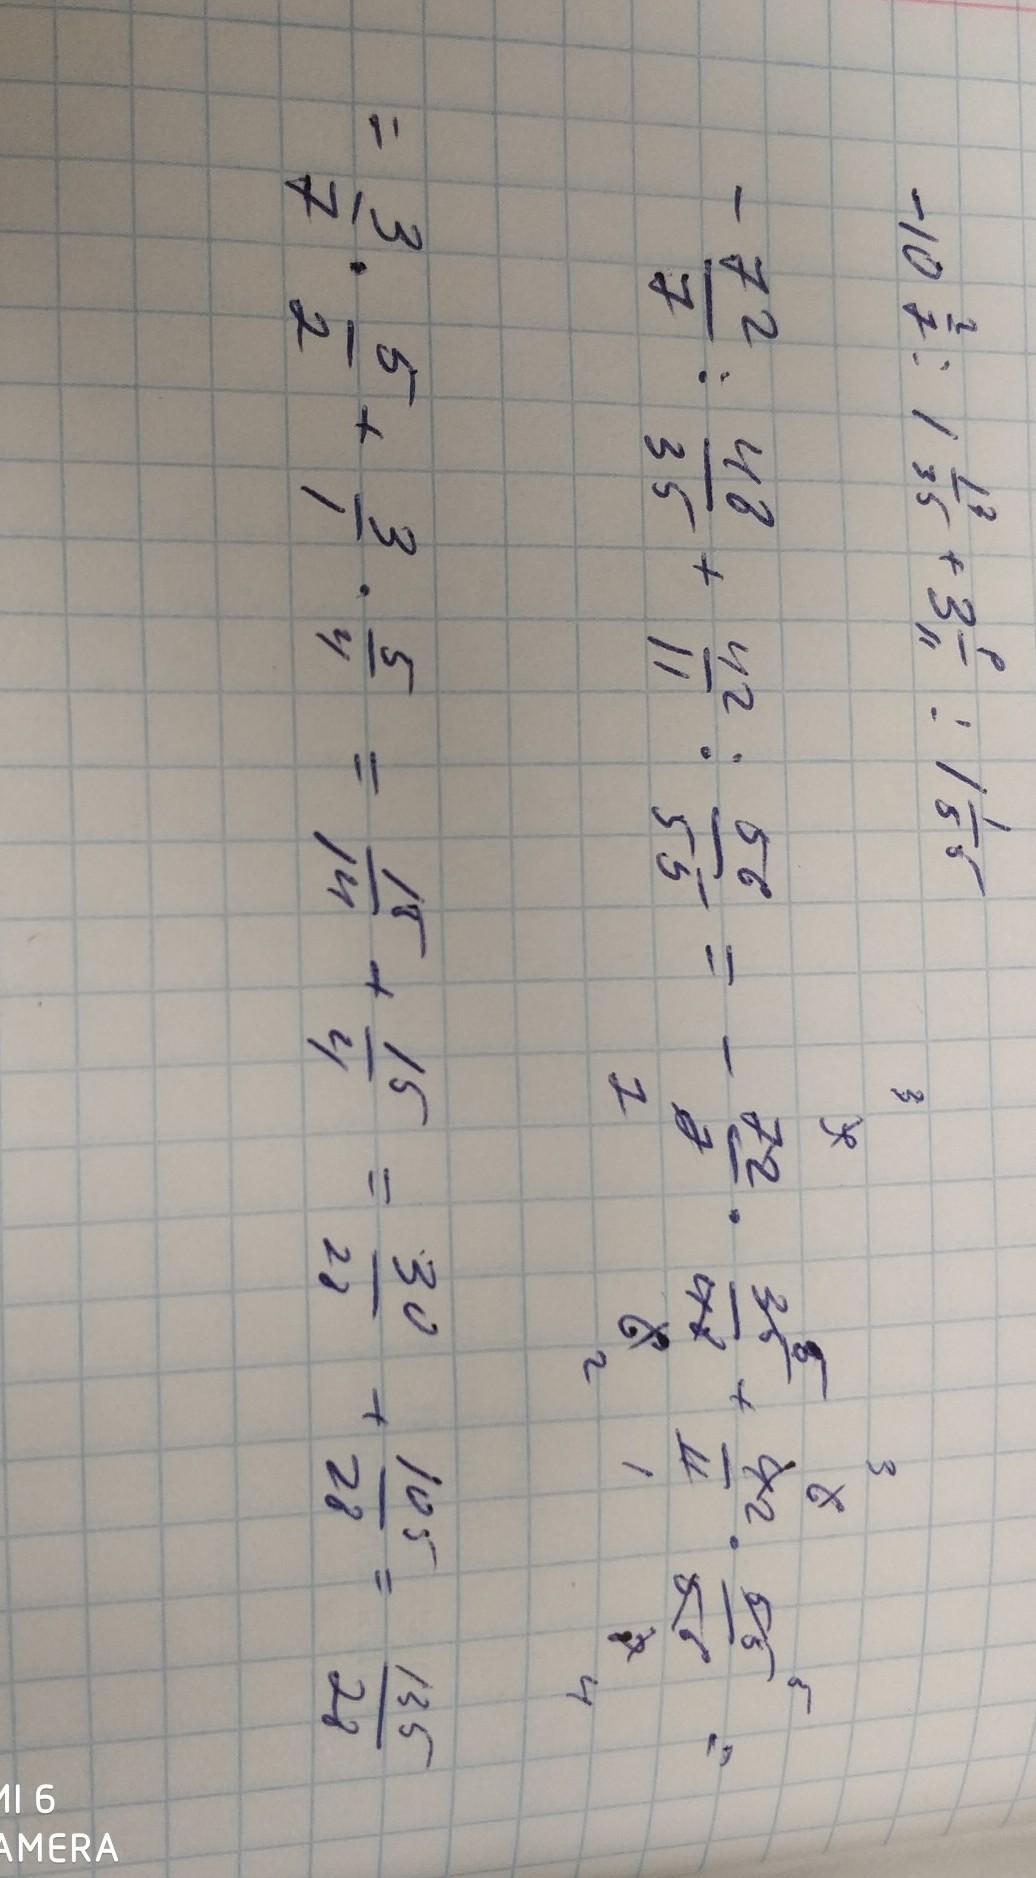 -10 2/7 : 1 13/35 + 3 9/11 : 1 1/55
- 72/7 : 48/35 + 42/11 : 56/55 = - 72/7 · 35/48 + 42/11 · 55/56 =
= 3/7 · 5/2 + 3/1 · 5/4 = 15/14 + 15/4 = 30/28 + 105/28 = 135/28
MI 6
AMERA